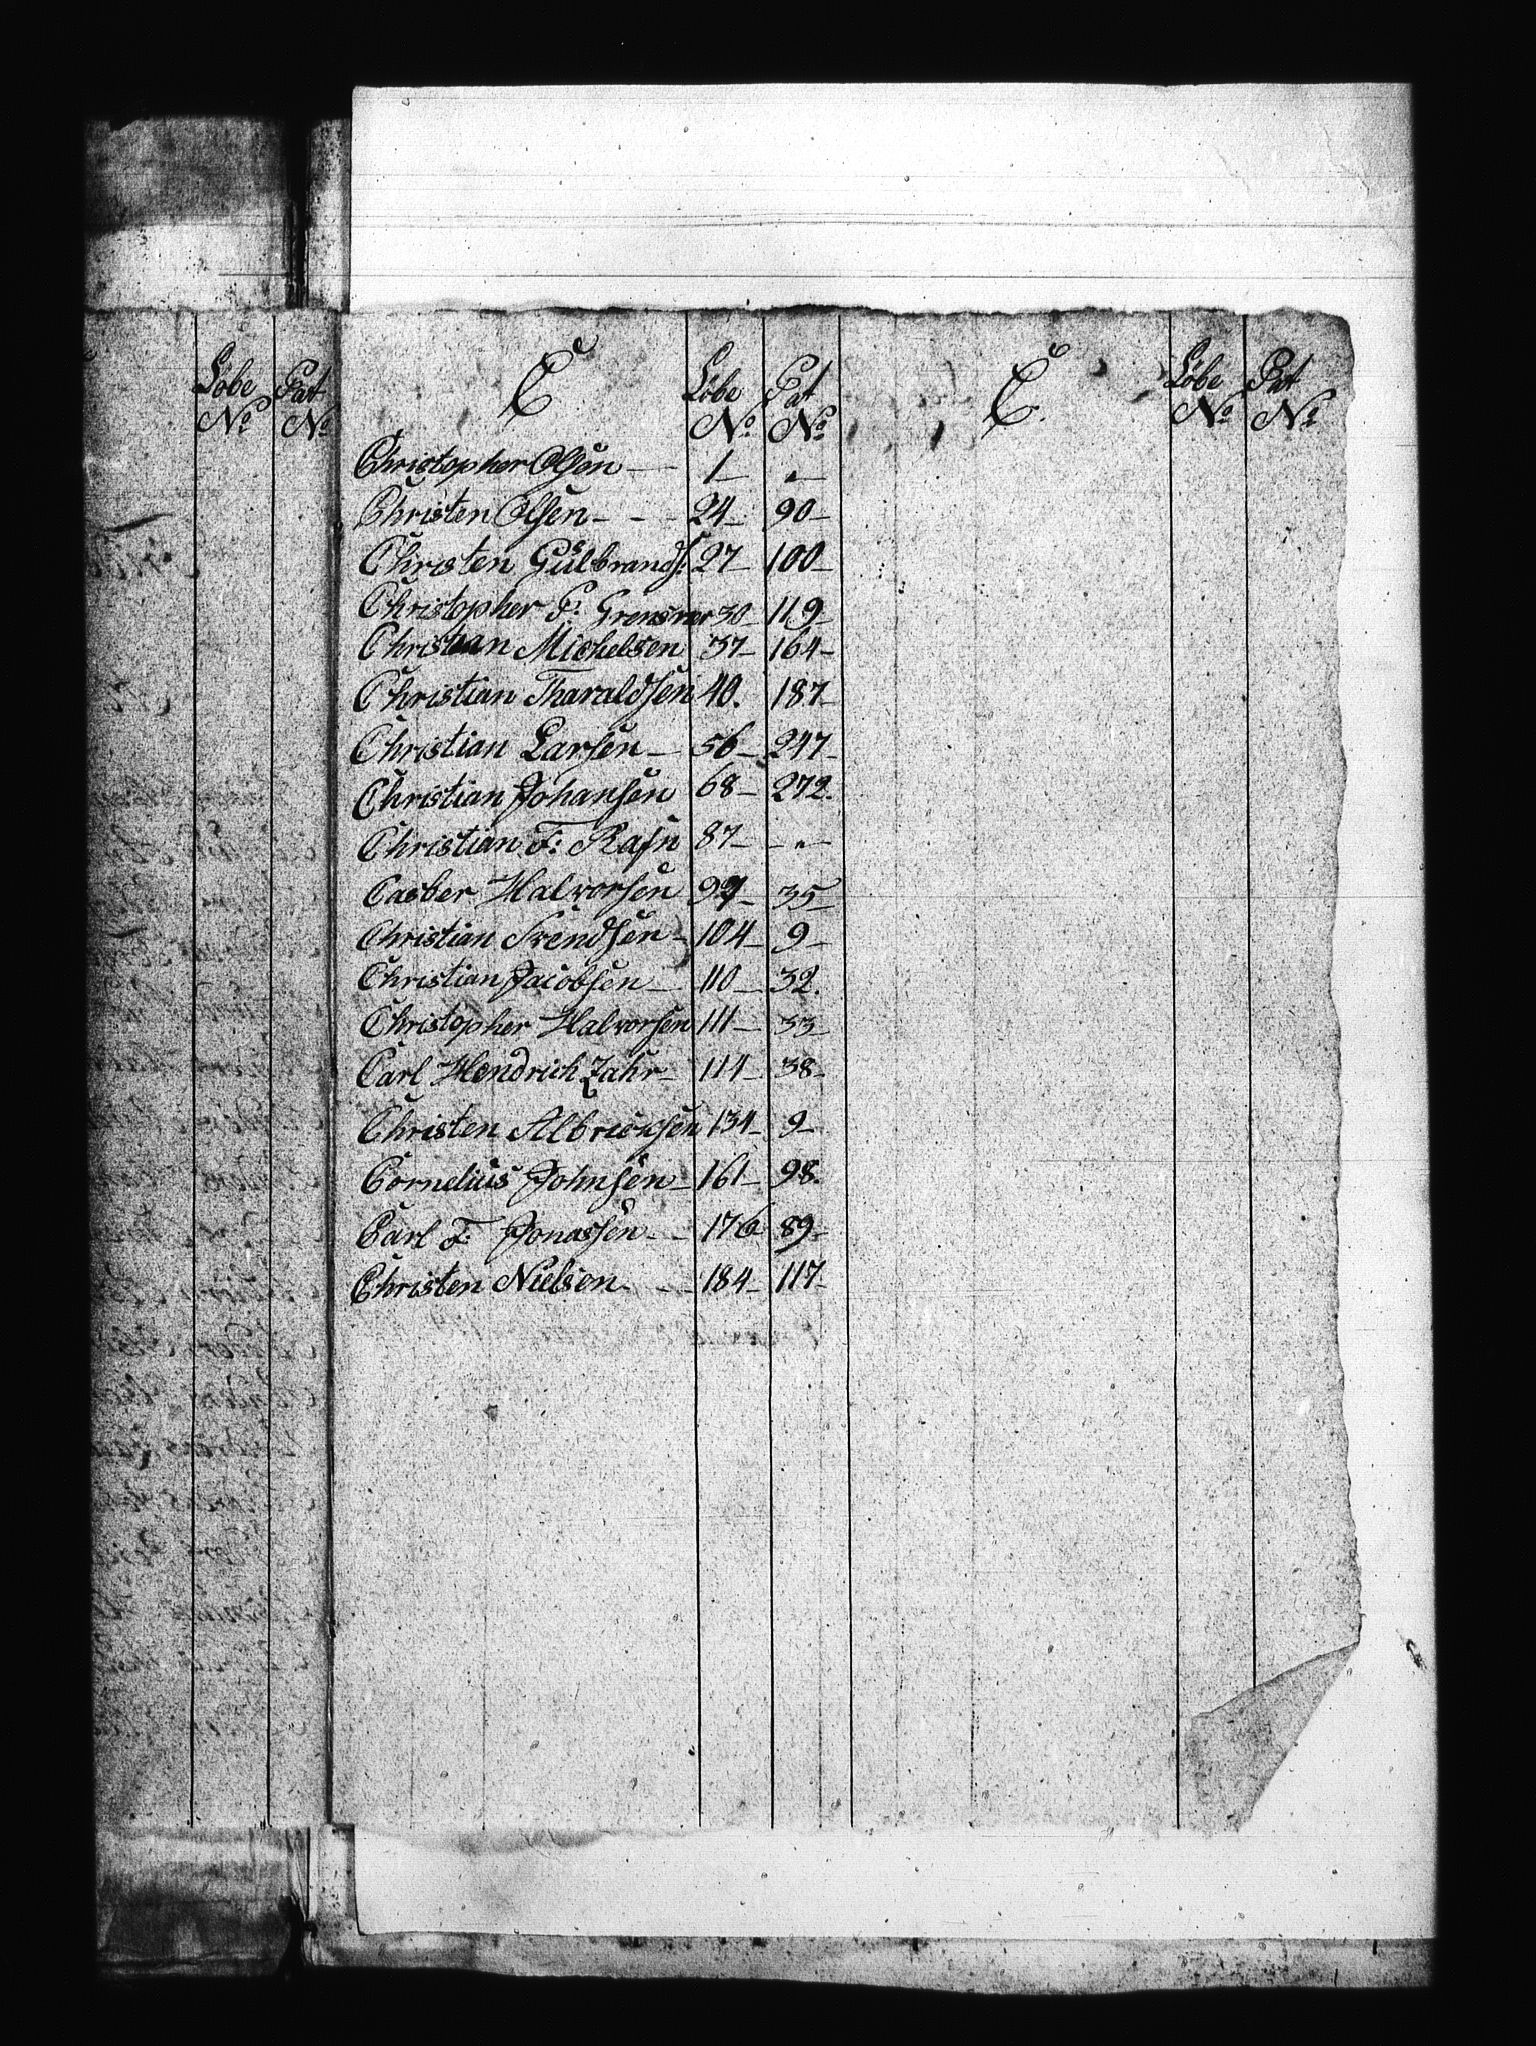 Löbe Pat
No No
C Löbe Pat
No No
Christopher Olsen — 1 — " —
Christen Olsen - - - 24 - 90 -
Christen Gülbrands: 27 - 100 -
Christopher P: 30 - 119 -
Christian Michelsen 37 - 164 -
Christian Tharaldsen 40. 187 -
Christian Larsen - 56 - 247 -
Christian Johansen 68 - 272.
Christian F: Rafn 87 - - " -
Casber Halvorsen 97 - 35 -
Christian Svendsen - 104 - 9 -
Christian Jacobsen - 110 - 32.
Christopher Halvorsen 111 - 33 -
Carl Hendrich Zahr - 114 - 38 -
Christen Albricksen 134 - 9 -
Cornelius Johnsen - 161 - 98.
Carl F. Jonassen - - 176 89 -
Christen Nielsen - - - 184 - 117 -
C. Löbe Pat
No No